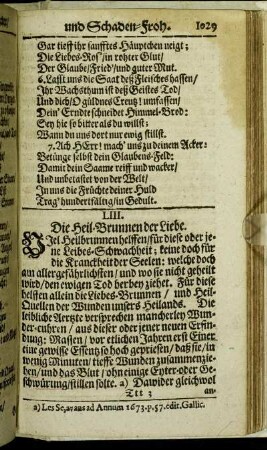 und Schaden-Froh. 1029
Gar tieff ihr sanfftes Häuptchen neigt;
Die Liebes-Ros' in rohter Glut/
Der Glaube/ Fried'/ und guter Mut.
6. Lasst uns die Saat deß Fleisches hassen/
Ihr Wachsthum ist deß Geistes Tod/
Und dich/ O güldnes Creutz! umfassen/
Dein' Erndte schneidet Himmel-Brod:
Sey hie so bitter als du willst;
Wann du uns dort nur ewig stillst.
7. Ach HErr! mach' uns zu deinem Acker:
Betünge selbst dein Glaubens-Feld:
Damit dein Saame reiff und wacker/
Und unbetastet von der Welt/
In uns die Früchte deiner Huld
Trag' hundertfältig/ in Gedult.
LIII.
Die Heil-Brunnen der Liebe.
Viel Heilbrunnen helffen/ für diese oder je-
ne Leibes-Schwachheit; keine doch für
die Kranckheit der Seelen: welche doch
am allergefährlichsten/ und wo sie nicht geheilt
wird/ den ewigen Tod herbey ziehet. Für diese
helffen allein die Liebes-Brunnen/ und Heil-
Quellen der Wunden unsers Heilands. Die
leibliche Aertzte versprechen mancherley Wun-
der-curen/ aus dieser oder jener neuen Erfin-
dung: Massen/ vor etlichen Jahren erst Einer
eine gewisse Essentz so hoch gepriesen/ daß sie/ in
wenig Minuten/ tieffe Wunden zusammenzie-
hen/ und das Blut/ ohn einige Eyter- oder Ge-
schwürung/ stillen solte. a) Dawider gleichwol
Ttt 3 an-
a) Les Sçavans ad Annum 1673. p. 57. edit. Gallic.